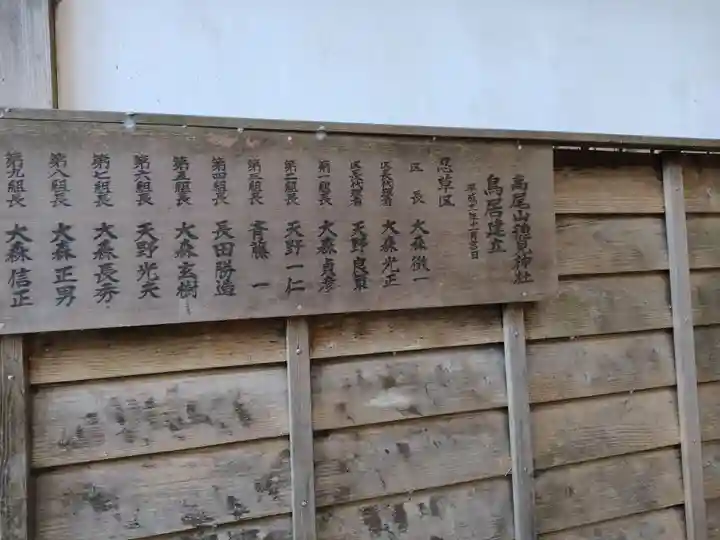 高尾山穂見神社
鳥居建立
平成十一年十一月吉日
忍草区
区長 大森徹一
区長代理者 大森光正
区長代理者 天野良巣
第一組長 大森貞彦
第二組長 天野一仁
第三組長 斉藤一
第四組長 長田勝造
第五組長 大森玄樹
第六組長 天野光夫
第七組長 大森長秀
第八組長 大森正男
第九組長 大森信正